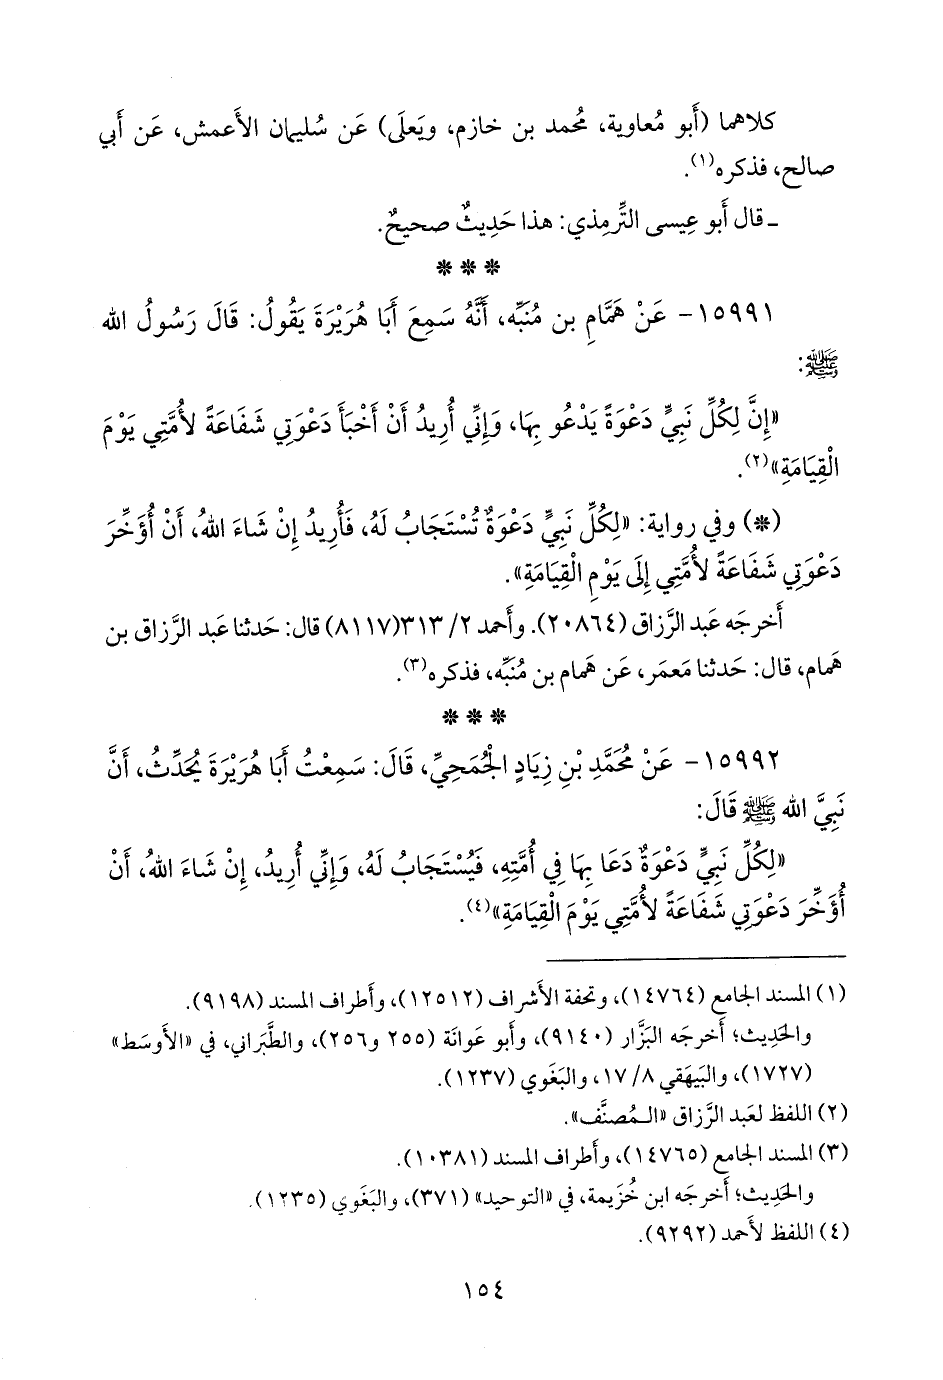 كلاهما (أَبو مُعاوية، مُحمد بن خازم، ويَعلَى) عَن سُليمان الأَعمش، عَن أَبي
صالح، فذكره(١).
ـ قال أَبو عِيسى التِّرمِذي: هذا حَدِيثٌ صحيحٌ.
* * *
١٥٩٩١- عَنْ هَمَّامِ بن مُنَبِّه، أَنَّهُ سَمِعَ أَبَا هُرَيْرَةَ يَقُولُ: قَالَ رَسُولُ الله
ﷺ:
«إِنَّ لِكُلِّ نَبِيٍّ دَعْوَةً يَدْعُو بِهَا، وَإِنِّي أُرِيدُ أَنْ أَخْبَأَ دَعْوَتِي شَفَاعَةً لأُمَّتِي يَوْمَ
الْقِيَامَةِ»(٢).
(*) وفي رواية: «لِكُلِّ نَبِيٍّ دَعْوَةٌ تُسْتَجَابُ لَهُ، فَأُرِيدُ إِنْ شَاءَ اللهُ، أَنْ أُؤَخِّرَ
دَعْوَتِي شَفَاعَةً لأُمَّتِي إِلَى يَوْمِ الْقِيَامَةِ».
أَخرجَه عَبد الرَّزاق (٢٠٨٦٤). وأَحمد ٢/ ٣١٣(٨١١٧) قال: حَدثنا عَبد الرَّزاق بن
هَمام، قال: حَدثنا مَعمَر، عَن هَمام بن مُنَبِّه، فذكره(٣).
* * *
١٥٩٩٢- عَنْ مُحَمَّدِ بْنِ زِيَادٍ الْجُمَحِيِّ، قَالَ: سَمِعْتُ أَبَا هُرَيْرَةَ يُحَدِّثُ، أَنَّ
نَبِيَّ الله ﷺ قَالَ:
«لِكُلِّ نَبِيٍّ دَعْوَةٌ دَعَا بِهَا فِي أُمَّتِهِ، فَيُسْتَجَابُ لَهُ، وَإِنِّي أُرِيدُ، إِنْ شَاءَ اللهُ، أَنْ
أُؤَخِّرَ دَعْوَتِي شَفَاعَةً لأُمَّتِي يَوْمَ الْقِيَامَةِ»(٤).
(١) المسند الجامع (١٤٧٦٤)، وتحفة الأَشراف (١٢٥١٢)، وأَطراف المسند (٩١٩٨).
والحَدِيث؛ أَخرجَه البَزَّار (٩١٤٠)، وأَبو عَوانَة (٢٥٥ و٢٥٦)، والطَّبَراني، في «الأَوسَط»
(١٧٢٧)، والبَيهَقي ٨/ ١٧، والبَغَوي (١٢٣٧).
(٢) اللفظ لعَبد الرَّزاق «المُصنَّف».
(٣) المسند الجامع (١٤٧٦٥)، وأَطراف المسند (١٠٣٨١).
والحَدِيث؛ أَخرجَه ابن خُزَيمة، في «التوحيد» (٣٧١)، والبَغَوي (١٢٣٥).
(٤) اللفظ لأَحمد (٩٢٩٢).
١٥٤